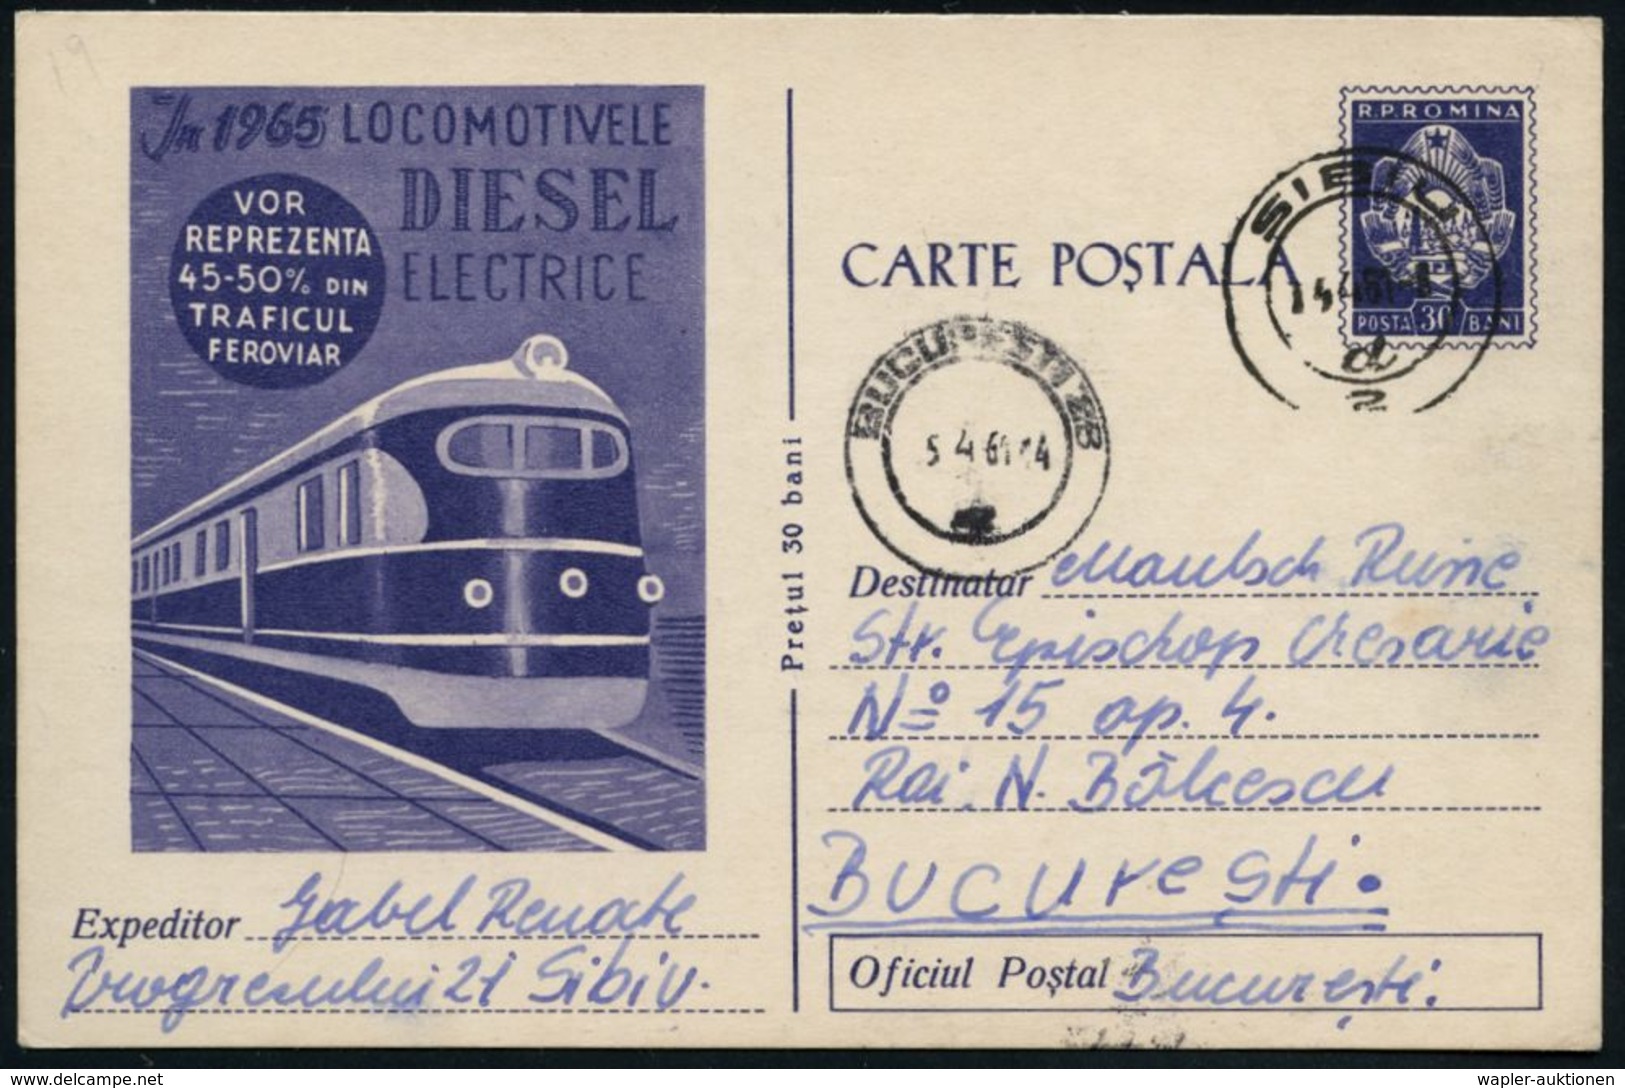 19
In 1965 LOCOMOTIVELE
DIESEL
ELECTRICE
VOR
REPREZENTA
45-50% DIN
TRAFICUL
FEROVIAR
Prețul 30 bani
CARTE POȘTALĂ
R.P.ROMINA
POSTA 30 BANI
SIBIU
d
2
BUCUREȘTI 28
5 4 61 14
Destinatar
Str. Episcop Chesarie
No 15 ap. 4.
Rai. N. Bălcescu
BUCUREȘTI.
Oficiul Poștal București.
Expeditor Gabel Renate
Progresului 21 Sibiu.
delcampe.net
wapler-auktionen